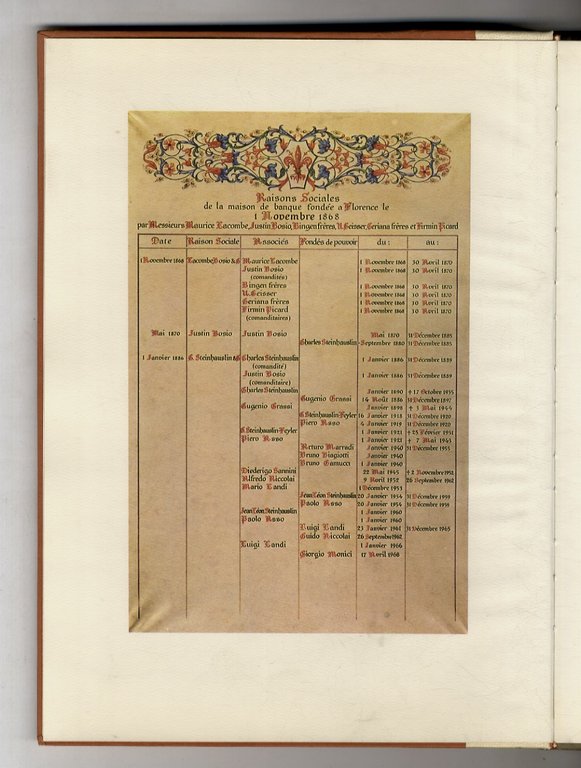 Raisons Sociales
de la maison de banque fondée a Florence le
1 Novembre 1868
par Messieurs Maurice Lacombe, Justin Bosio, Bingen frères, U. Geisser, Geriana frères et Firmin Picard
Date Raison Sociale Associés Fondés de pouvoir du: au:
1 Novembre 1868 Lacombe Bosio & C Maurice Lacombe 1 Novembre 1868 30 Avril 1870
Justin Bosio 1 Novembre 1868 30 Avril 1870
(comandités)
Bingen frères 1 Novembre 1868 30 Avril 1870
U. Geisser 1 Novembre 1868 30 Avril 1870
Geriana frères 1 Novembre 1868 30 Avril 1870
Firmin Picard 1 Novembre 1868 30 Avril 1870
(comanditaires)
Mai 1870 Justin Bosio Justin Bosio Mai 1870 31 Décembre 1885
Charles Steinhauslin Septembre 1880 31 Décembre 1885
1 Janvier 1886 C. Steinhauslin & C Charles Steinhauslin 1 Janvier 1886 31 Décembre 1889
(comandité)
Justin Bosio 1 Janvier 1886 31 Décembre 1889
(comanditaire)
Charles Steinhauslin Janvier 1890 † 17 Octobre 1935
Eugenio Grassi 14 Août 1886 31 Décembre 1897
Eugenio Grassi Janvier 1898 † 3 Mai 1944
C. Steinhauslin-Feyler 16 Janvier 1918 31 Décembre 1920
Piero Asso 4 Janvier 1919 31 Décembre 1920
C. Steinhauslin-Feyler 1 Janvier 1921 † 25 Février 1951
Piero Asso 1 Janvier 1921 † 7 Mai 1945
Arturo Marradi Janvier 1940 31 Décembre 1955
Bruno Biagiotti Janvier 1940
Bruno Camucci 1 Janvier 1940
Diederigo Sannini 22 Mai 1945 † 2 Novembre 1952
Alfredo Riccolai 9 Avril 1952 26 Septembre 1962
Mario Landi 1 Décembre 1953
Jean Léon Steinhauslin 20 Janvier 1954 31 Décembre 1959
Paolo Asso 20 Janvier 1954 31 Décembre 1959
Jean Léon Steinhauslin 1 Janvier 1960
Paolo Asso 1 Janvier 1960
Luigi Landi 23 Janvier 1961 31 Décembre 1965
Guido Riccolai 26 Septembre 1962
Luigi Landi 1 Janvier 1966
Giorgio Monici 17 Avril 1968